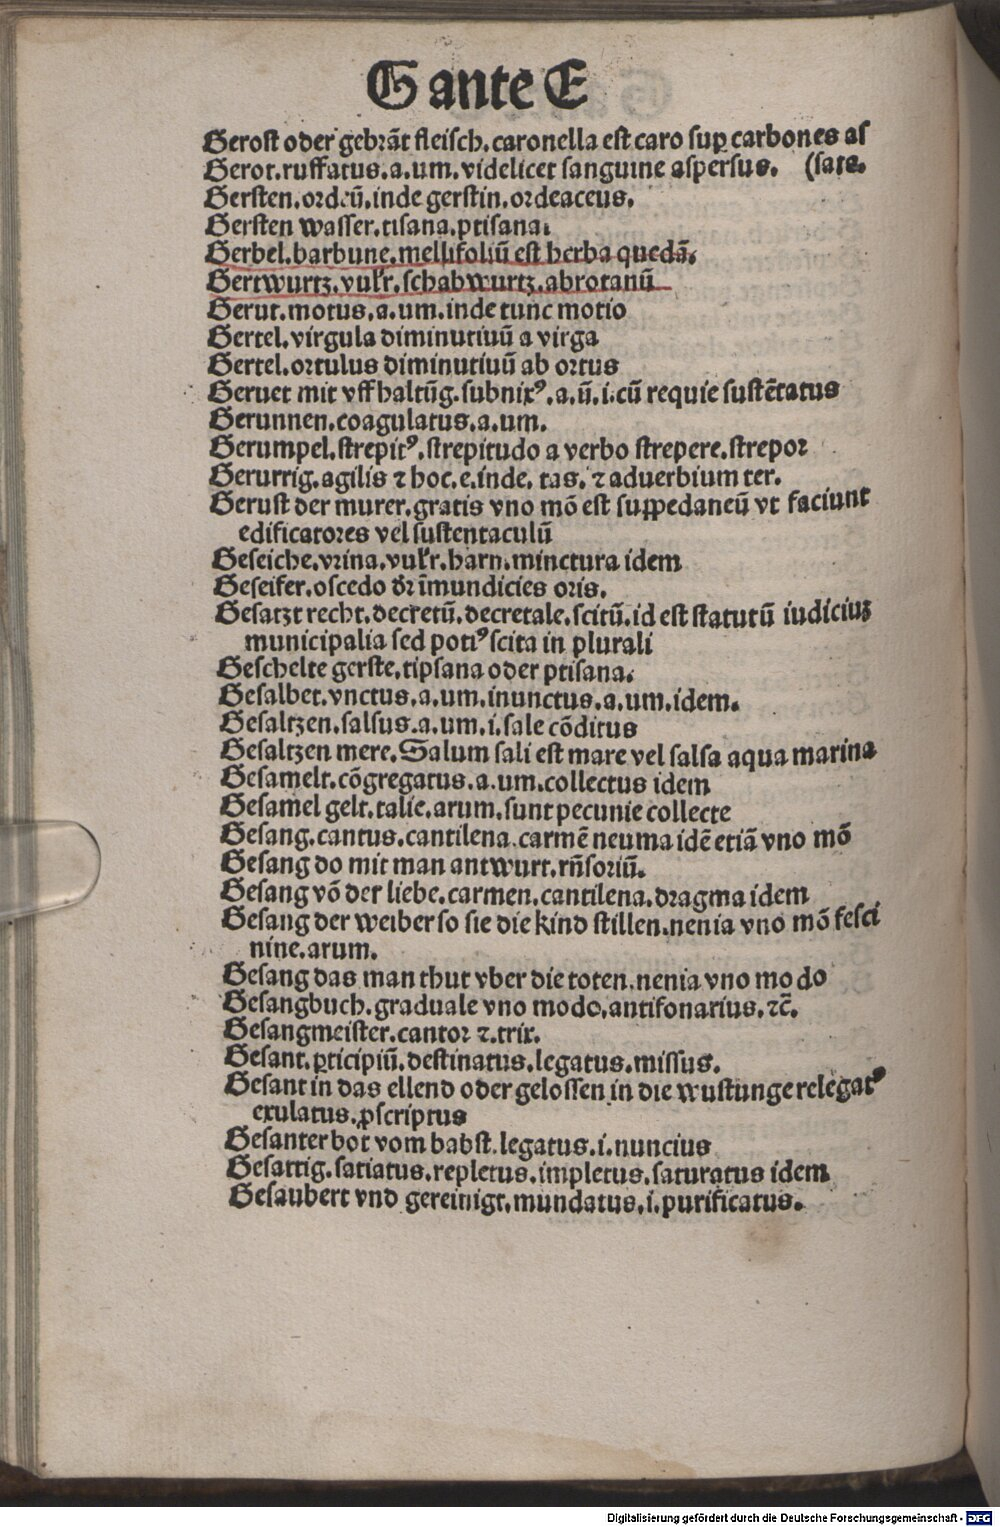 G ante E
Gerost oder gebrāt fleisch. caronella est caro suꝑ carbones as
Gerot. ruffatus. a. um. videlicet sanguine aspersus. (sate.
Gersten. ordeū. inde gerstin. ordeaceus.
Gersten wasser. tisana. ptisana.
Gerbel. barbune. mellifoliū est herba quedā.
Gertwurtz. vulr. schabwurtz. abrotanū
Gerut. motus. a. um. inde tunc motio
Gertel. virgula diminutiuū a virga
Gertel. ortulus diminutiuū ab ortus
Geruet mit vffhaltūg. subnixꝰ. a. ū. i. cū requie sustētatus
Gerunnen. coagulatus. a. um.
Gerumpel. strepitꝰ. strepitudo a verbo strepere. strepor
Gerurrig. agilis ⁊ hoc. e. inde. tas. ⁊ aduerbium ter.
Gerust der murer. gratis vno mō est suppedaneū vt faciunt
edificatores vel sustentaculū
Geseiche. vrina. vulr. harn. minctura idem
Geseifer. oscedo dr īmundicies oris.
Gesatzt recht. decretū. decretale. scitū. id est statutū iudiciuz
municipalia sed potiꝰ scita in plurali
Geschelte gerste. tipsana oder ptisana.
Gesalbet. vnctus. a. um. inunctus. a. um. idem.
Gesaltzen. salsus. a. um. i. sale cōditus
Gesaltzen mere. Salum sali est mare vel salsa aqua marina
Gesamelt. cōgregatus. a. um. collectus idem
Gesamel gelt. talie. arum. sunt pecunie collecte
Gesang. cantus. cantilena. carmē neuma idē etiā vno mō
Gesang do mit man antwurt. rn̄soriū.
Gesang vō der liebe. carmen. cantilena. dragma idem
Gesang der weiber so sie die kind stillen. nenia vno mō fesci
nine. arum.
Gesang das man thut vber die toten. nenia vno modo
Gesangbuch. graduale vno modo. antifonarius. ⁊c̄.
Gesangmeister. cantor ⁊. trix.
Gesant. ꝑticipiū. destinatus. legatus. missus.
Gesant in das ellend oder gelossen in die wustunge relegatꝰ
exulatus. ꝓscriptus
Gesanter bot vom babst. legatus. i. nuncius
Gesattig. satiatus. repletus. impletus. saturatus idem
Gesaubert vnd gereinigt. mundatus. i. purificatus.
Digitalisierung gefördert durch die Deutsche Forschungsgemeinschaft - DFG